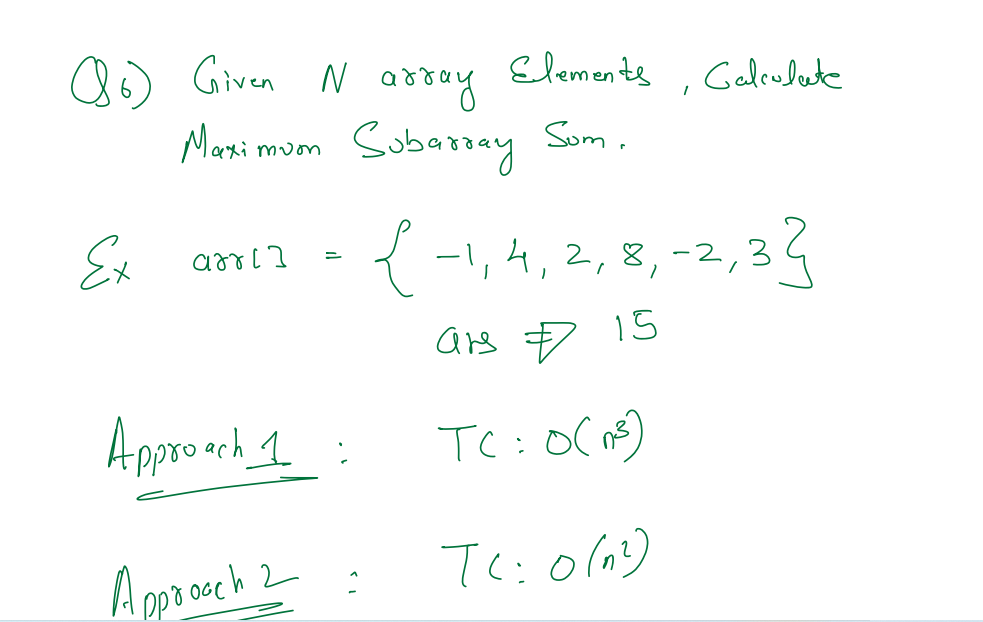 Q6) Given N array Elements, Calculate
Maximum Subarray Sum.
Ex arr[] = { -1, 4, 2, 8, -2, 3 }
ans ⇒ 15
Approach 1 : TC : O(n³)
Approach 2 : TC : O(n²)